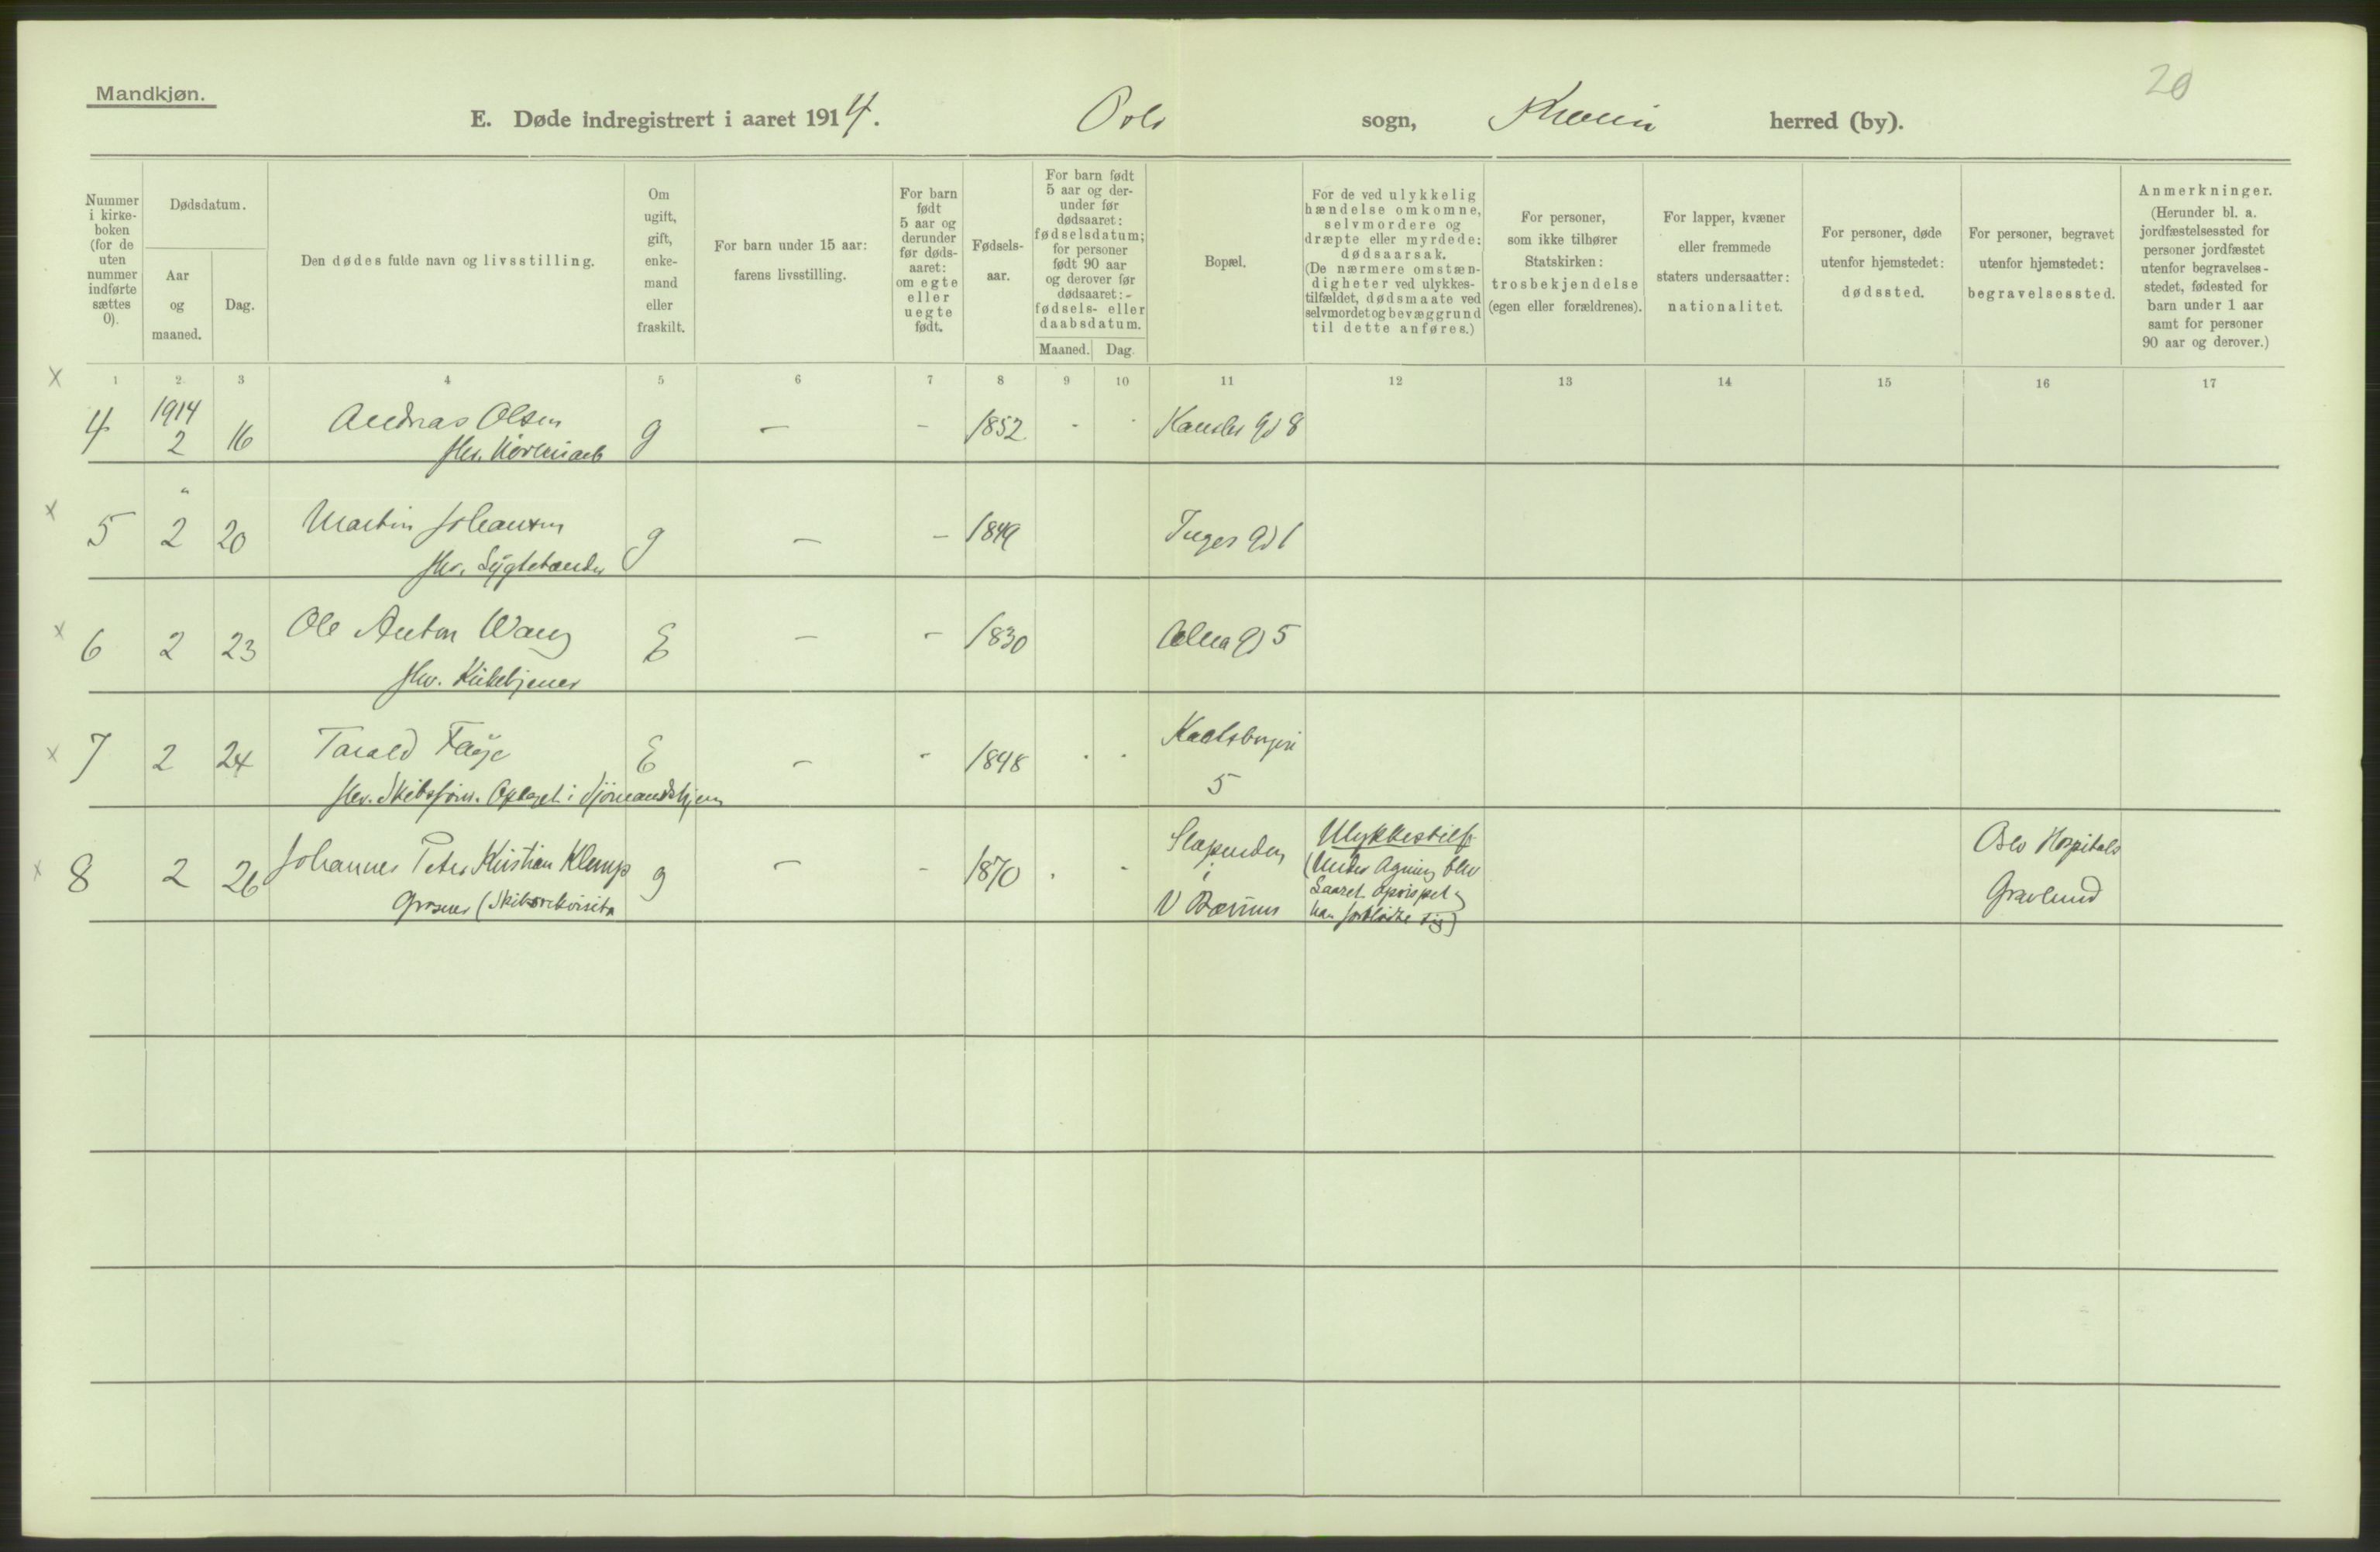 Mandkjøn.
20
E. Døde indregistrert i aaret 1914. Oslo sogn, Kra herred (by).
Nummer i kirke- boken (for de uten nummer indførte sættes 0).
Dødsdatum.
Aar og maaned.
Dag.
Den dødes fulde navn og livsstilling.
Om ugift, gift, enke- mand eller fraskilt.
For barn under 15 aar: farens livsstilling.
For barn født 5 aar og derunder før døds- aaret: om egte eller uegte født.
Fødsels- aar.
For barn født 5 aar og der- under før dødsaaret: fødselsdatum; for personer født 90 aar og derover før dødsaaret:- fødsels- eller daabsdatum.
Maaned.
Dag.
Bopæl.
For de ved ulykkelig hændelse omkomne, selvmordere og dræpte eller myrdede: dødsaarsak. (De nærmere omstæn- digheter ved ulykkes- tilfældet, dødsmaate ved selvmordet og bevæggrund til dette anføres.)
For personer, som ikke tilhører Statskirken: trosbekjendelse (egen eller forældrenes).
For lapper, kvæner eller fremmede staters undersaatter: nationalitet.
For personer, døde utenfor hjemstedet: dødssted.
For personer, begravet utenfor hjemstedet: begravelsessted.
Anmerkninger. (Herunder bl. a. jordfæstelsessted for personer jordfæstet utenfor begravelses- stedet, fødested for barn under 1 aar samt for personer 90 aar og derover.)
x 1 2 3 4 5 6 7 8 9 10 11 12 13 14 15 16 17
1914
4 2 16 Andreas Olsen g — - 1852 - - Kansler Gd 8
fhv.
"
x 5 2 20 Martin Johansen g — - 1849 Inges Gd 1
fhv. Lygtetænder
x 6 2 23 Ole Anton Wang E — - 1830 Alna Gd 5
fhv. Kirketjener
x 7 2 24 Tarald E — - 1848 - -
fhv. Skibsføm. Optaget i Sjømandshjem 5
x 8 2 26 Johannes Peter Kristian Klemp g — - 1870 - - Slependen i V Bærum
Grosserer (Skibsrekvisita
Ulykkestilf
(Under Agning blev
Laaret oprispet
han forblødte sig)
Oslo Hospitals
Gravlund